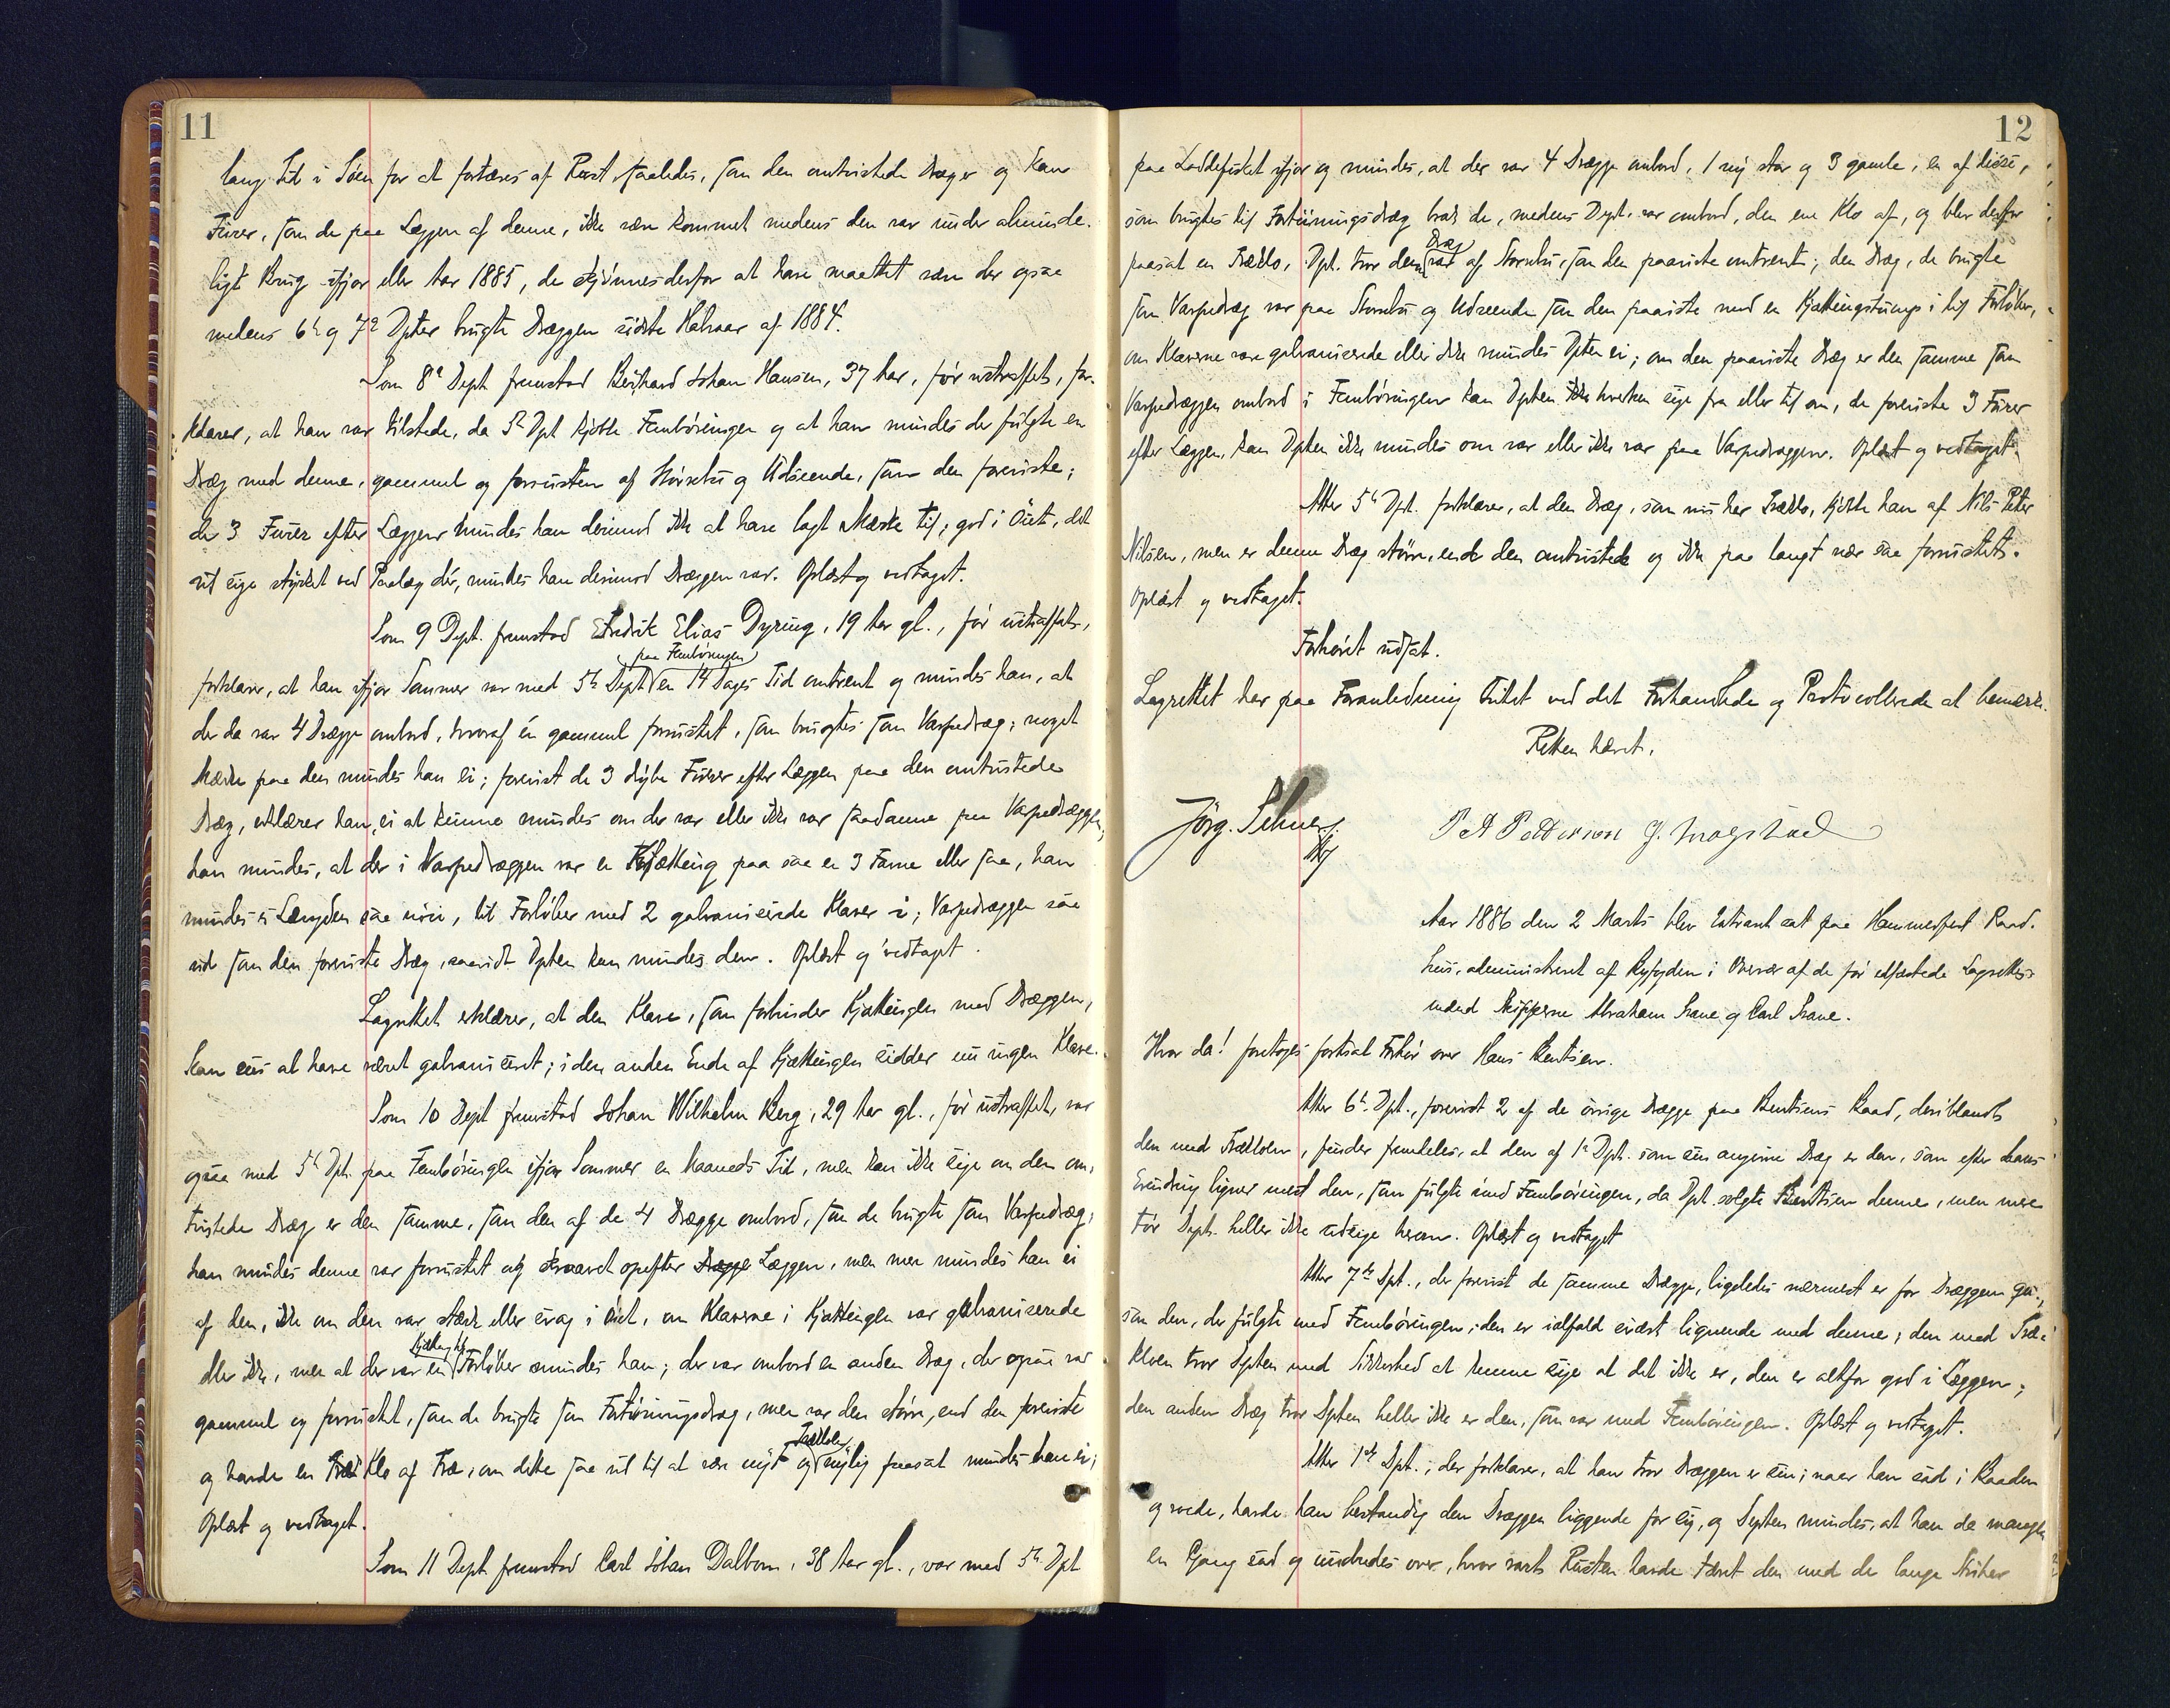 11
lang Tid i Söen for at fortæres af Rust, saaledes, som den omtvistede Dræg er og kan
Furer, som de paa Læggen af denne, ikke være kommet medens den var under alminde-
ligt Brug ifjor eller Aar 1885, de skjönnes derfor at have maattet være der ogsaa
medens 6te og 7de Dpter brugte Dræggen sidste Halvaar af 1884.
Som 8de Dept fremstod Bernhard Johan Hansen, 37 Aar, för ustraffet, for-
klarer, at han var tilstede, da 5te Dpt kjöbte Femböringen og at han mindes der fulgte en
Dræg med denne, gammel og forrusten af Störrelse og Udseende, som den foreviste;
de 3 Furer efter Læggen mindes han derimod ikke at have lagt Mærke til; god i Öiet, det
vil sige stykket ved Paalæg der, mindes han derimod Dræggen var. Oplæst og vedtaget.
Som 9 Dept. fremstod Fredrik Elias Dyring, 19 Aar gl., för ustraffet,
paa Femböringen
forklarer, at han ifjor Sommer var med 5te Dept en 14 Dages Tid omtrent og mindes han, at
der da var 4 Drægge ombord, hvoraf én gammel forrustet, som brugtes som Varpedræg; noget
Mærke paa den mindes han ei; forevist de 3 dybe Furer efter Læggen paa den omtvistede
Dræg, erklærer han, ei at kunne mindes om der var eller ikke var saadanne paa Varpedræggen;
han mindes, at der i Varpedræggen var en Kjætting paa saa en 3 Favne eller saa, han
mindes ei Længden saa nöie, til Forlöber med 2 galvaniserede Klaver i; Varpedræggen saa
ud som den foreviste Dræg, saavidt Dpten kan mindes den. Oplæst og vedtaget.
Lagrettet erklærer, at den Klave, som forbinder Kjættingen med Dræggen,
kan sees at have været galvaniseret; i den anden Ende af Kjættingen sidder nu ingen Klave.
Som 10 Dept fremstod Johan Wilhelm Berg, 29 Aar gl., för ustraffet, var
ogsaa med 5te Dpt. paa Femböringen ifjor Sommer en Maaneds Tid, men kan ikke sige om den om-
tvistede Dræg er den samme, som den af de 4 Drægge ombord, som de brugte som Varpedræg,
han mindes denne var forrustet og skaaret opefter Drægge Læggen, men mer mindes han ei
af den, ikke om den var stærk eller svag i öiet, om Klaverne i Kjættingen var galvaniserede
Kjætting til
eller ikke, men at der var en Forlöber mindes han; der var ombord en anden Dræg, der ogsaa var
gammel og forrustet, som de brugte som Fortöiningsdræg, men var den större, end den foreviste
Trækloen
og havde en Træ Klo af Træ, om dette saa ud til at være nyt og nylig paasat mindes han ei;
Oplæst og vedtaget.
Som 11 Dept. fremstod Carl Johan Dalbom, 38 Aar gl., var med 5te Dpt
12
paa Loddefisket ifjor og mindes, at der var 4 Drægge ombord, 1 ny stor og 3 gamle, en af disse,
som brugtes til Fortöiningsdræg brak de, medens Dept. var ombord, den ene Klo af, og blev derfor
Dræg
paasat en Træklo, Dpt. tror den var af Störrelse, som den paaviste omtrent; den Dræg, de brugte
som Varpedræg var paa Störrelse og Udseende som den paaviste med en Kjættingstump i til Forlöber,
om Klaverne var galvaniserede eller ikke mindes Dpten ei; om den paaviste Dræg er den samme som
Varpedræggen ombord i Femböringen kan Dpten ikke hverken sige fra eller til om, de foreviste 3 Furer
efter Læggen, kan Dpten ikke mindes om var eller ikke var paa Varpedræggen. Oplæst og vedtaget.
Atter 5te Dpt. forklarer, at den Dræg, som nu har Træklo, kjöbte han af Nils Peter
Nilsen, men er denne Dræg större, end den omtvistede og ikke paa langt nær saa forrustet.
Oplæst og vedtaget.
Forhöret udsat.
Lagrettet har paa Foranledning Intet ved det Forhandlede og Protocollerede at bemærke.
Retten hævet.
P A Pedersen J. Mogstad
Aar 1886 den 2 Marts blev Extraret sat paa Hammerfest Raad-
hus, administreret af Byfogden i Overvær af de för edfæstede Lagrettes-
mænd Skipperne Abraham Krane og Carl Krane.
Hvor da! foretoges fortsat Forhör over Hans Bentsen.
Atter 6te Dpt., forevist 2 af de övrige Drægge paa Bentsens Baad, deriblandt
den med Trækloen, finder fremdeles, at den af 1ste Dpt. som sin angivne Dræg er den, som efter hans
Erindring ligner mest den, som fulgte med Femböringen, da Dpt solgte Bentsen denne, men mere
tör Dept. heller ikke udsige herom. Oplæst og vedtaget
Atter 7de Dpt., der forevist de samme Drægge, ligeledes nærmest er for Dræggen
som den, der fulgte med Femböringen; den er ialfald svært lignende med denne; den med Træ-
kloen tror Dpten med Sikkerhed at kunne sige at det ikke er, den er altfor god i Læggen;
den anden Dræg tror Dpten heller ikke er den, som var med Femböringen. Oplæst og vedtaget.
Atter 1ste Dpt., der forklarer, at han tror Dræggen er sin; naar han sad i Baaden
og roede, havde han bestandig den Dræggen liggende for sig, og Depten mindes, at han da mangen
en Gang sad og undredes over, hvor svært Rusten havde tæret den med de lange Striber